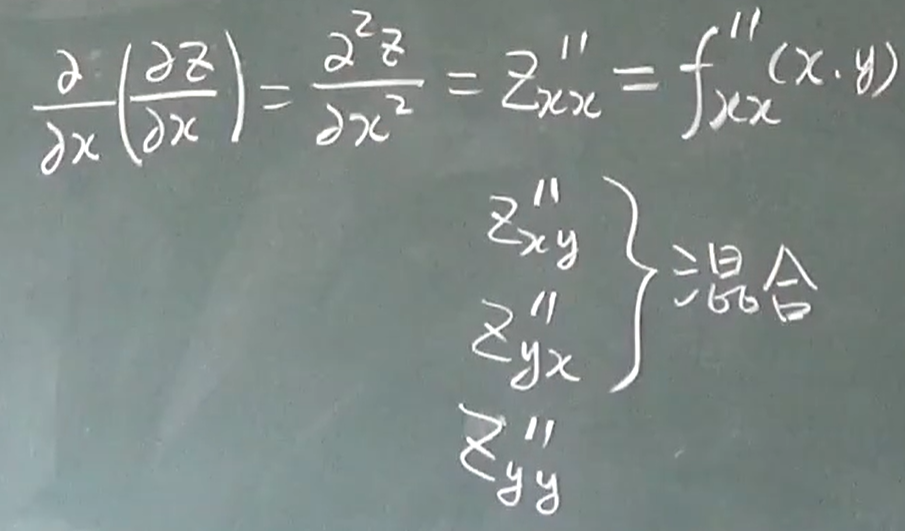 ∂/∂x (∂z/∂x) = ∂²z/∂x² = z''xx = f''xx (x.y)
z''xy
z''yx
} 混合
z''yy